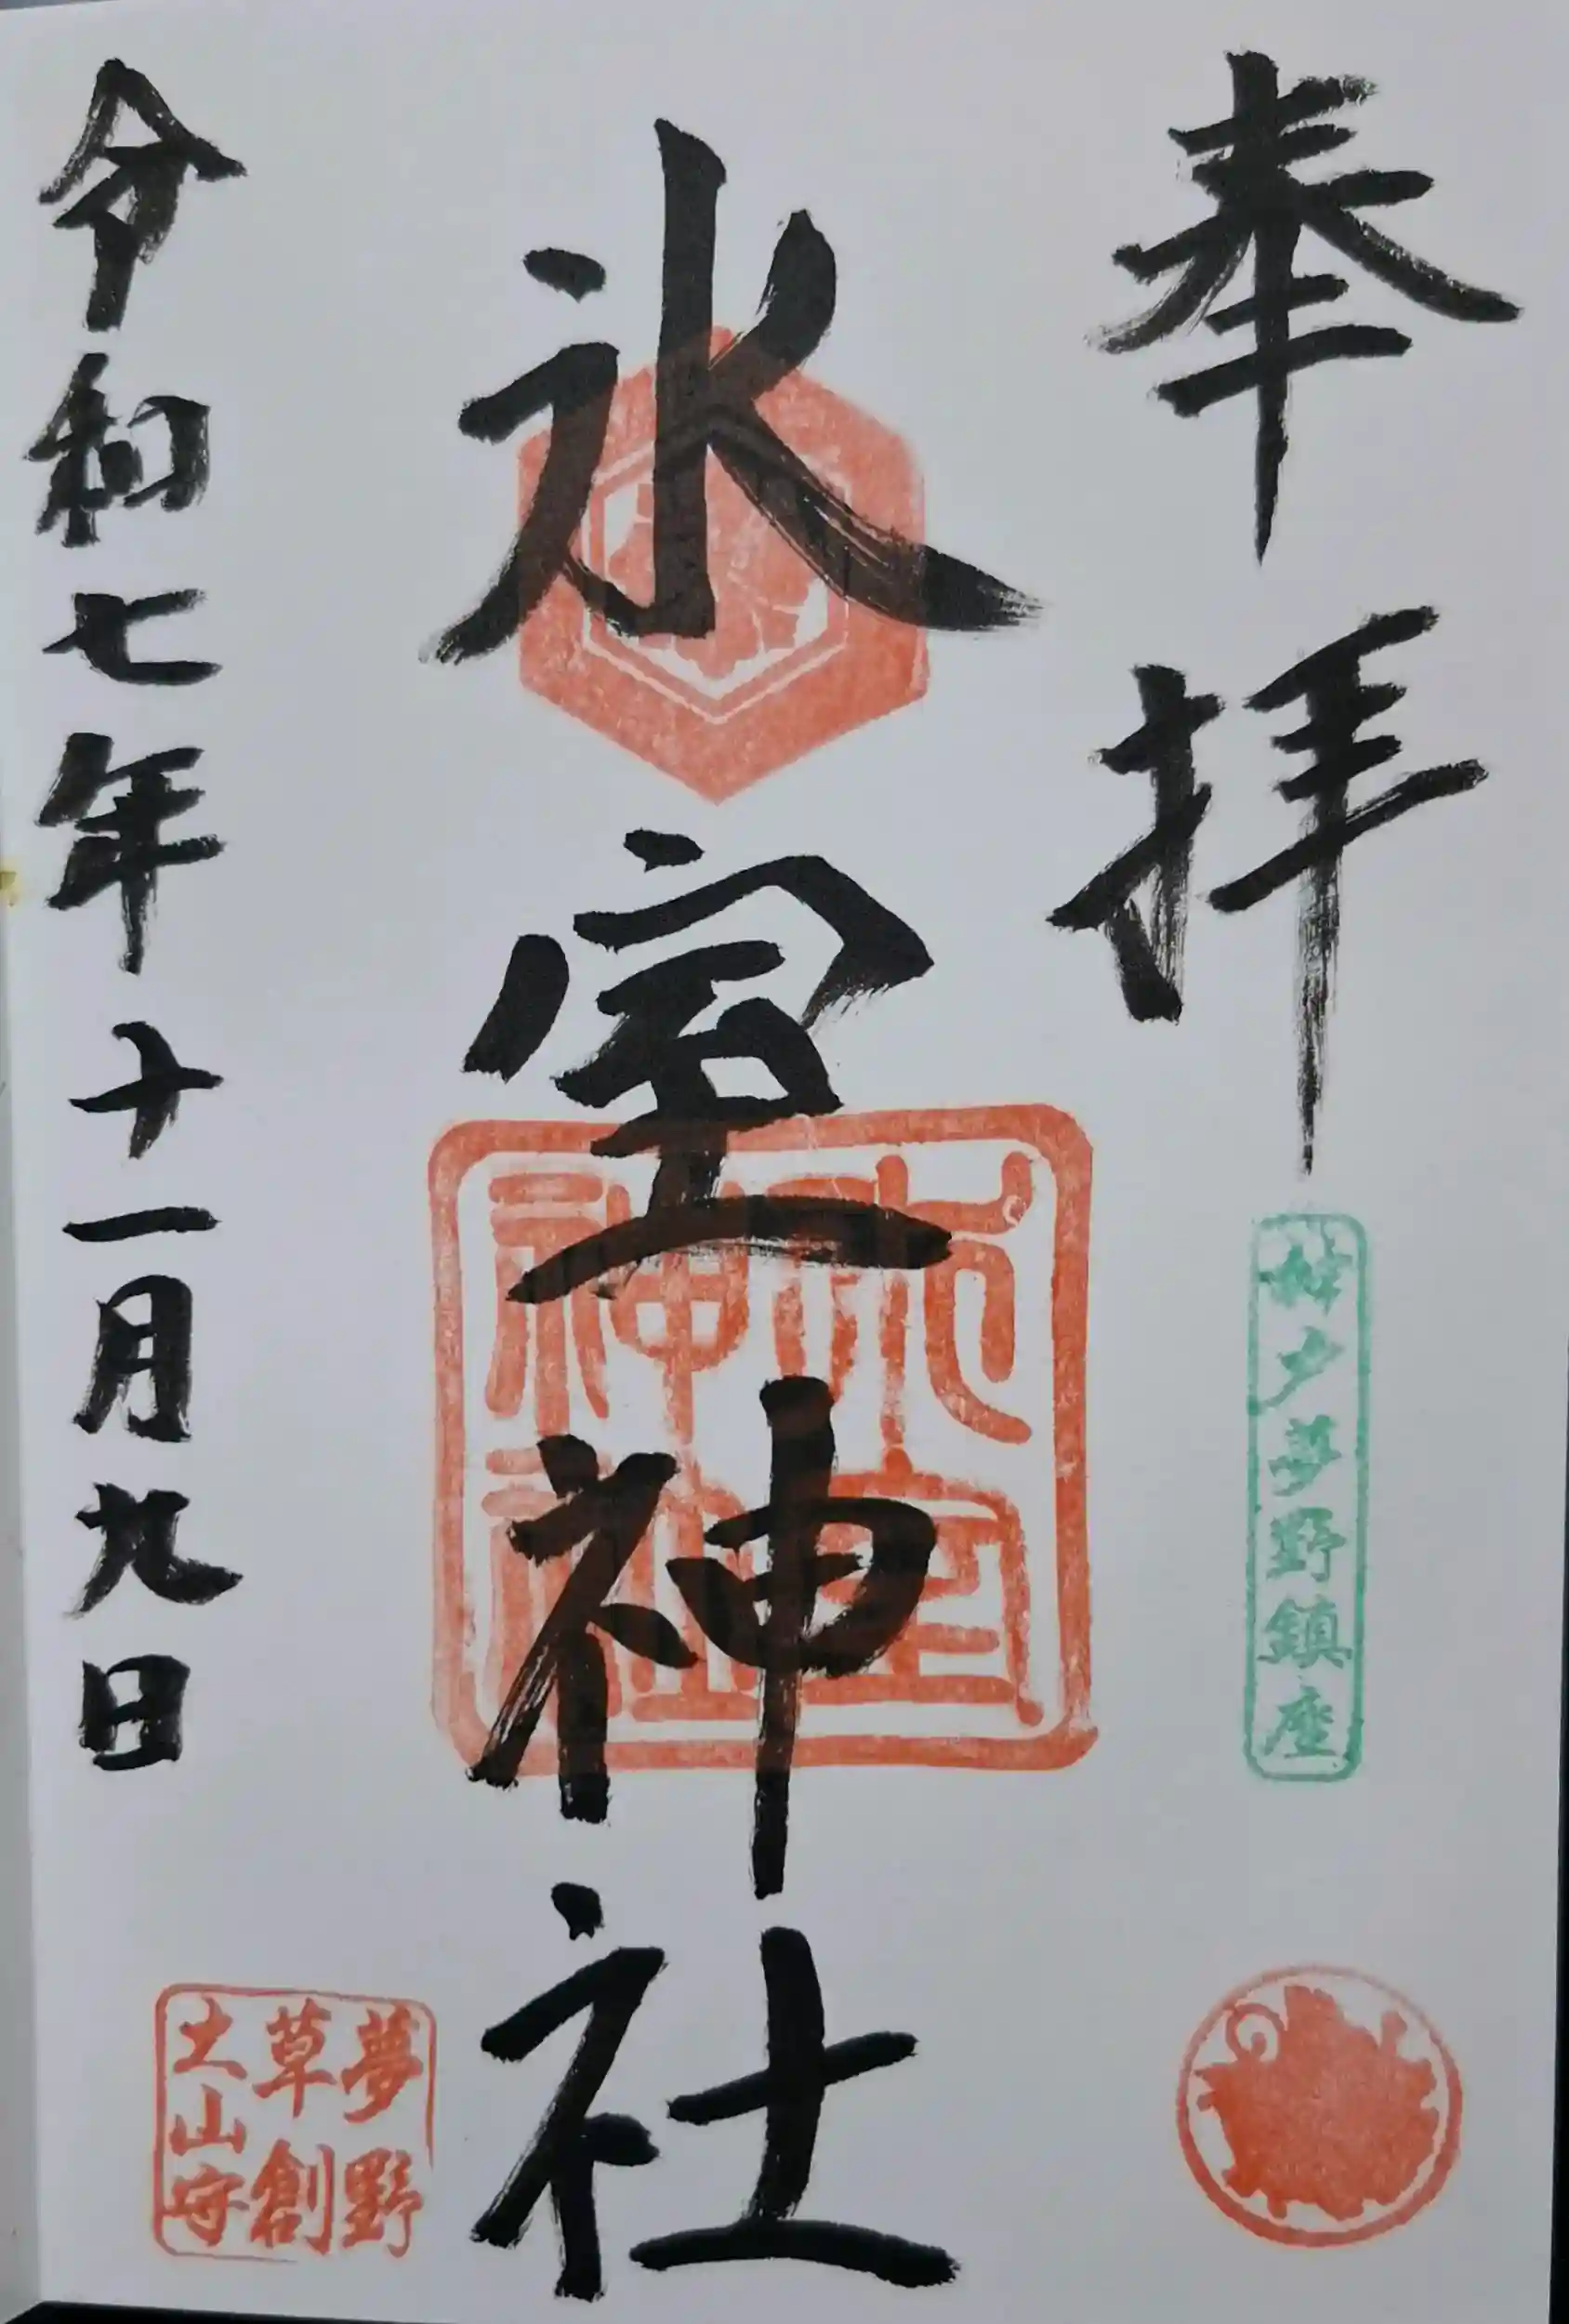 奉拝
夢野鎮座
氷室神社
氷室
神社
令和七年十一月九日
夢野
草創
之山守